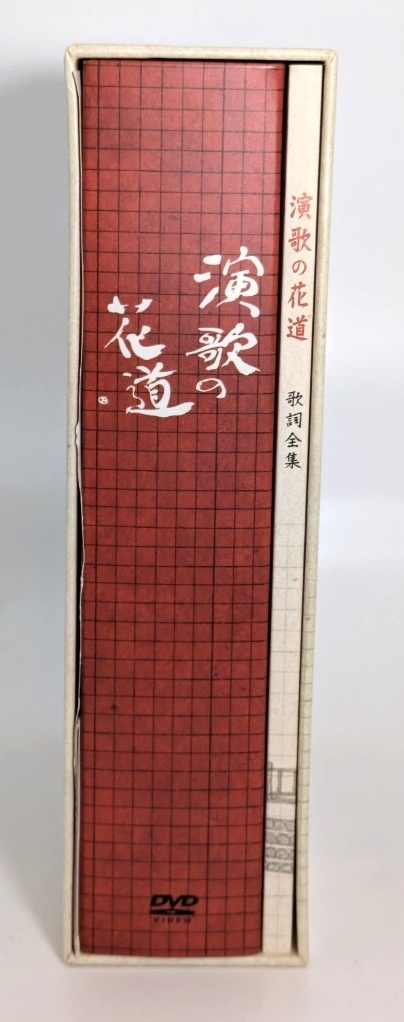 演歌の
花道
DVD
VIDEO
演歌の花道
歌詞全集